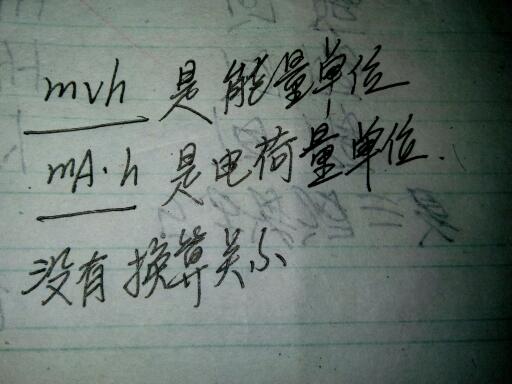 mvh 是能量单位
mA·h 是电荷量单位.
没有换算关系